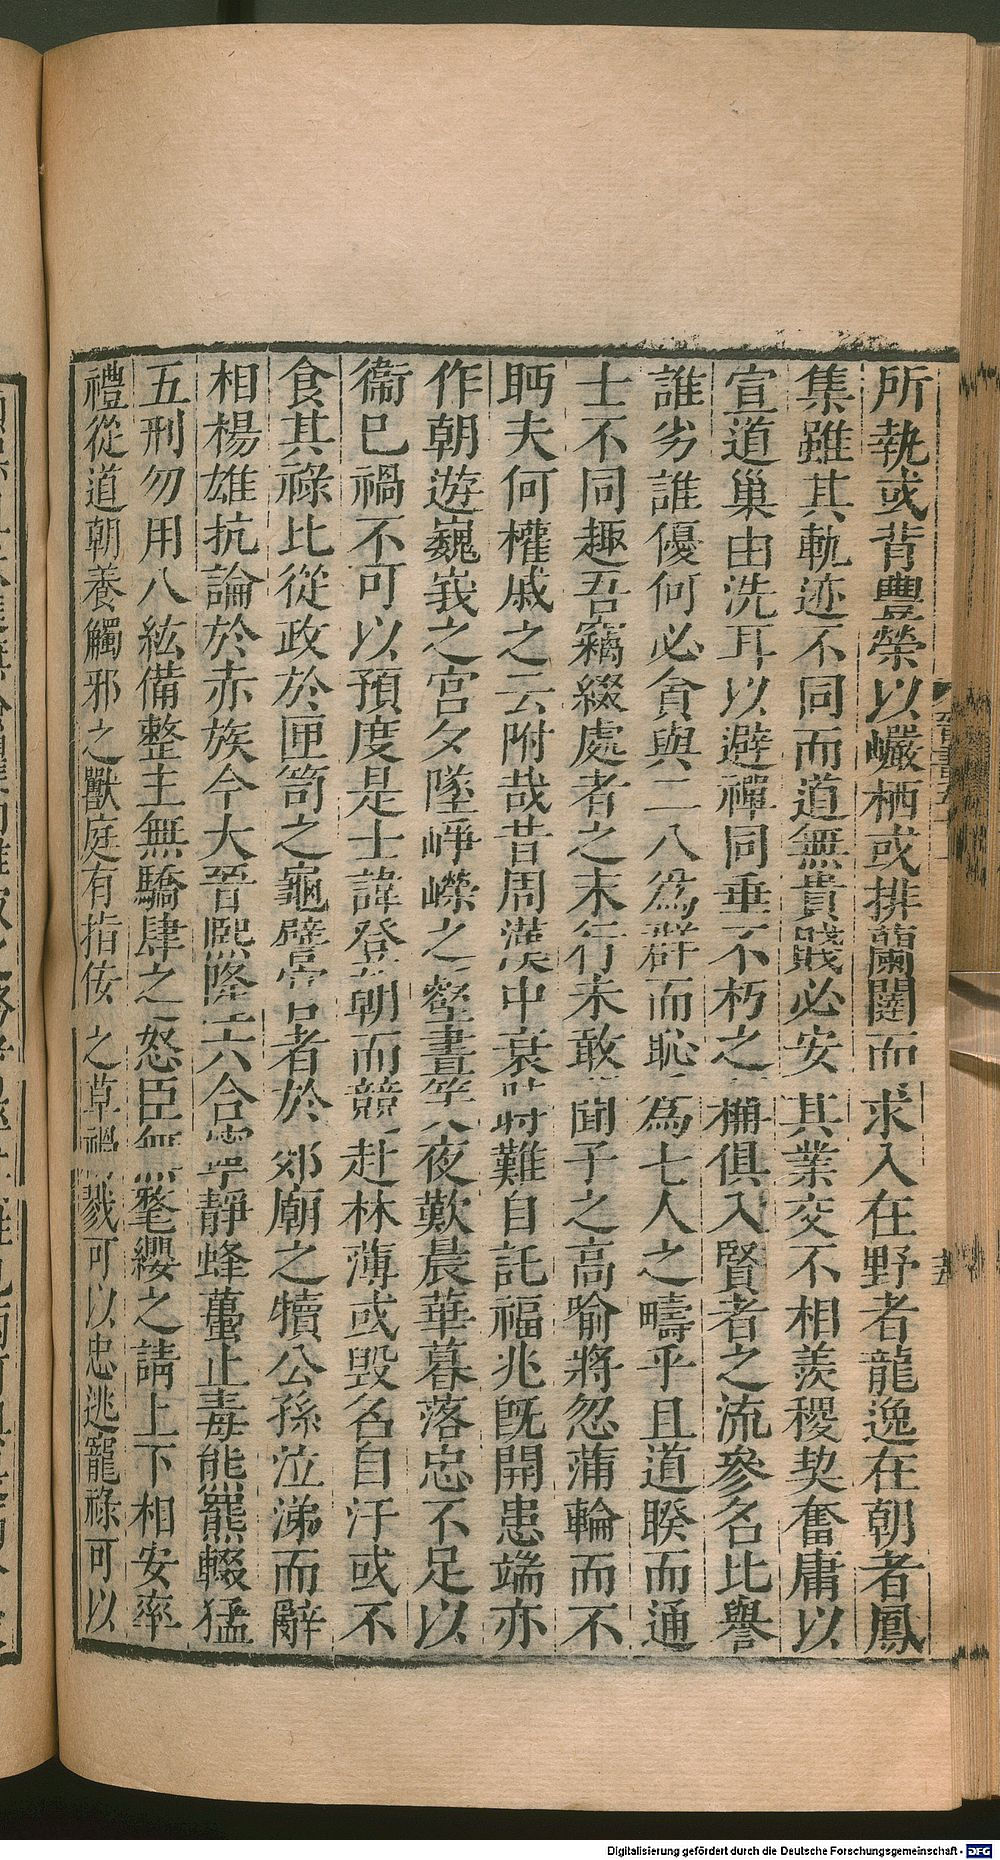 所執或背豐榮以巖栖或排蘭闥而求入在野者龍逸在朝者鳳
集雖其軌迹不同而道無貴賤必安其業交不相羨稷契奮庸以
宣道巢由洗耳以避禪同垂不朽之稱俱入賢者之流參名比譽
誰劣誰優何必貪與二八爲群而恥爲七人之疇乎且道睽而通
士不同趣吾竊綴處者之末行未敢聞子之高喻將忽蒲輪而不
眄夫何權戚之云附哉昔周漢中衰時難自託福兆旣開患端亦
作朝遊巍峩之宮夕墜崢嶸之壑晝笑夜歎晨華暮落忠不足以
衞巳禍不可以預度是士諱登朝而競赴林薄或毀名自汙或不
食其祿比從政於匣笥之龜譬官者於郊廟之犢公孫泣涕而辭
相楊雄抗論於赤族今大晉熙隆六合寧靜蜂蠆止毒熊羆輟猛
五刑勿用八紘備整主無驕肆之怒臣無氂纓之請上下相安率
禮從道朝養觸邪之獸庭有指佞之草禍戮可以忠逃寵祿可以
晉書五十一
Digitalisierung gefördert durch die Deutsche Forschungsgemeinschaft - DFG